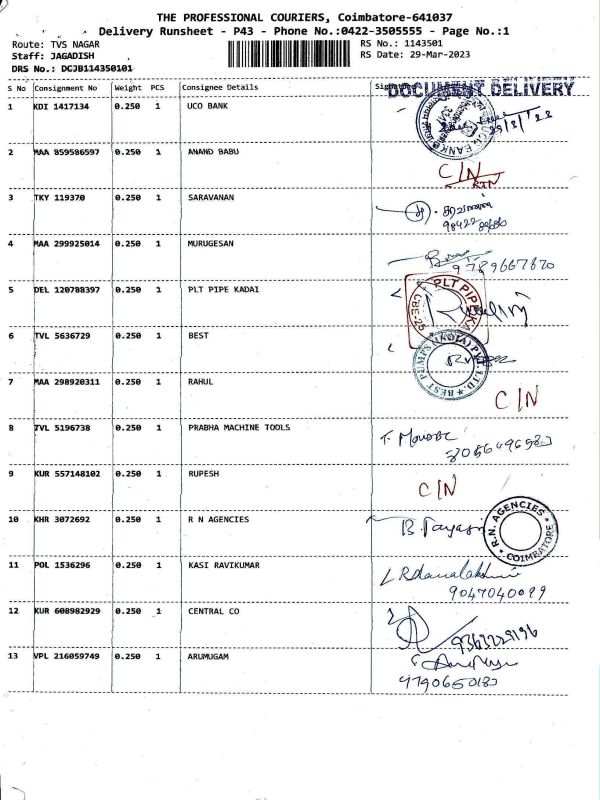 THE PROFESSIONAL COURIERS, Coimbatore-641037
Delivery Runsheet - P43 - Phone No.:0422-3505555 - Page No.:1
Route: TVS NAGAR RS No.: 1143501
Staff: JAGADISH RS Date: 29-Mar-2023
DRS No.: DCJB114350101
S No Consignment No Weight PCS Consignee Details Signature
DOCUMENT DELIVERY
1 KDI 1417134 0.250 1 UCO BANK
2 MAA 859586597 0.250 1 ANAND BABU C/N
3 TKY 119370 0.250 1 SARAVANAN
4 MAA 299925014 0.250 1 MURUGESAN
9789667620
5 DEL 120788397 0.250 1 PLT PIPE KADAI
PLT PIPE KA
CBE-25
6 TVL 5636729 0.250 1 BEST
BEST PUMPS (INDIA) PVT. LTD.
7 MAA 298920311 0.250 1 RAHUL C/N
8 TVL 5196738 0.250 1 PRABHA MACHINE TOOLS
9 KUR 557148102 0.250 1 RUPESH C/N
10 KHR 3072692 0.250 1 R N AGENCIES
R.N. AGENCIES
COIMBATORE
11 POL 1536296 0.250 1 KASI RAVIKUMAR
9047040099
12 KUR 608982929 0.250 1 CENTRAL CO
9363229196
13 VPL 216059749 0.250 1 ARUMUGAM
9790650183